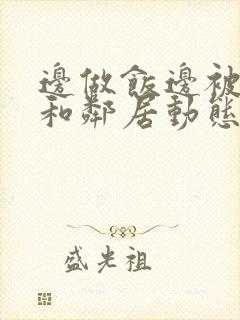 邊做飯邊被
和鄰居動態
盛光祖